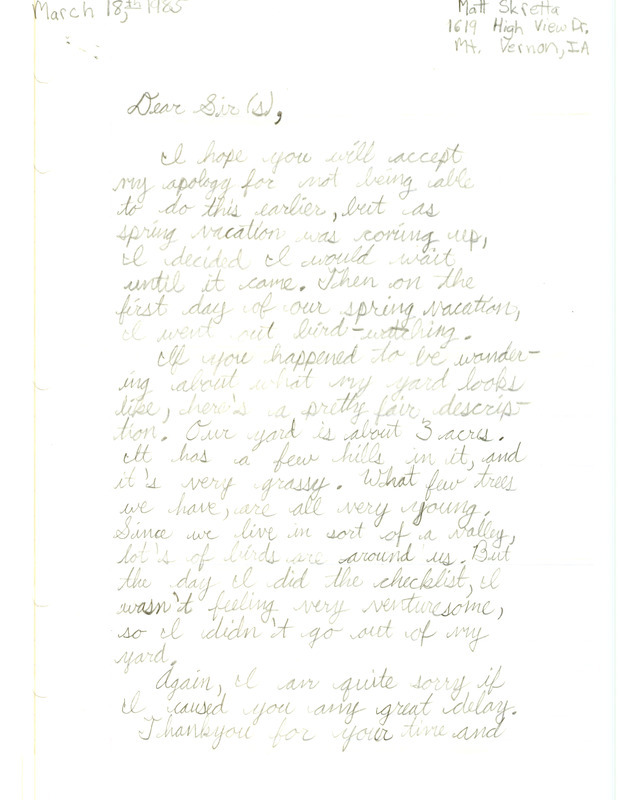 March 18,th 1985
Matt Skretta
1619 High View Dr.
Mt. Vernon, IA
Dear Sir(s),
I hope you will accept
my apology for not being able
to do this earlier, but as
spring vacation was coming up,
I decided I would wait
until it came. Then on the
first day of our spring vacation,
I went out bird-watching.
If you happened to be wonder-
ing about what my yard looks
like, here's a pretty fair descrip-
tion. Our yard is about 3 acres.
It has a few hills in it, and
it's very grassy. What few trees
we have, are all very young.
Since we live in sort of a valley,
lot's of birds are around us. But
the day I did the checklist, I
wasn't feeling very venturesome,
so I didn't go out of my
yard.
Again, I am quite sorry if
I caused you any great delay.
Thankyou for your time and